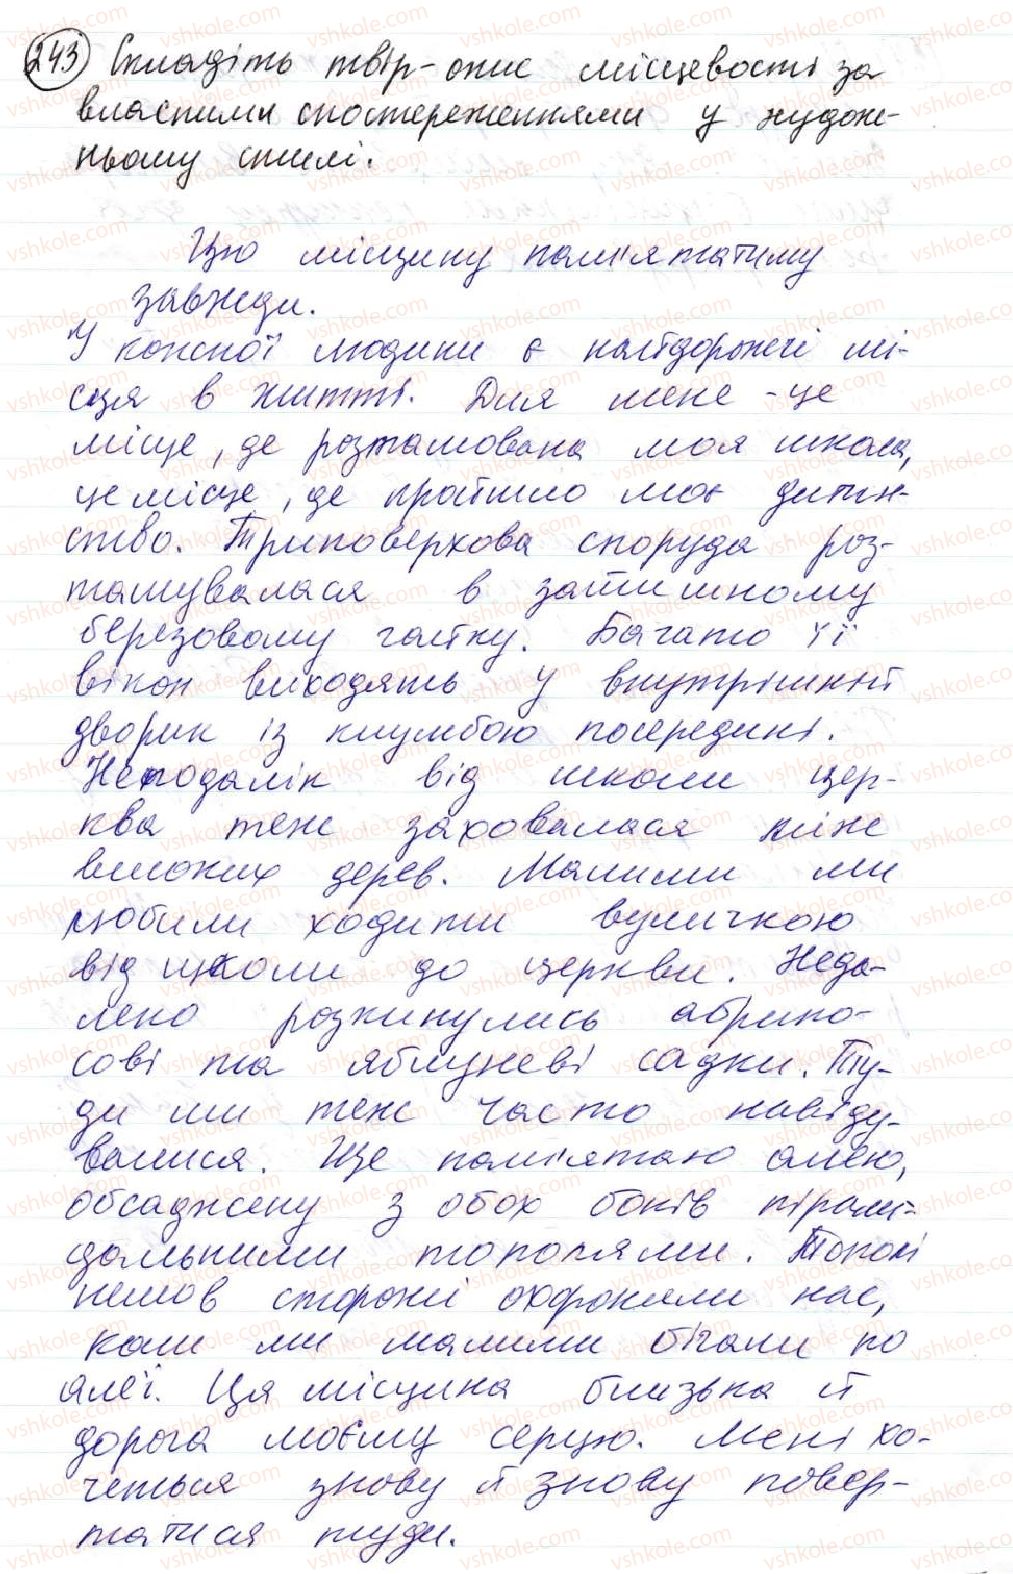 243 Складіть твір-опис місцевості за
власними спостереженнями у худож-
ньому стилі.
Цю місцину пам'ятатиму
завжди.
У кожної людини є найдорожчі мі-
сця в житті. Для мене - це
місце, де розташована моя школа,
це місце, де пройшло моє дитин-
ство. Триповерхова споруда роз-
ташувалася в затишному
березовому гайку. Багато її
вікон виходять у внутрішній
дворик із клумбою посередині.
Неподалік від школи цер-
ква теж заховалася між
високих дерев. Малими ми
любили ходити вуличкою
від школи до церкви. Неда-
леко розкинулись абрико-
сові та яблуневі садки. Ту-
ди ми теж часто навіду-
валися. Ще пам'ятаю алею,
обсаджену з обох боків пірамі-
дальними тополями. Тополі
немов сторожі охороняли нас,
коли ми малими бігали по
алеї. Ця місцина близька й
дорога моєму серцю. Мені хо-
четься знову й знову повер-
татися туди.
vshkole.com